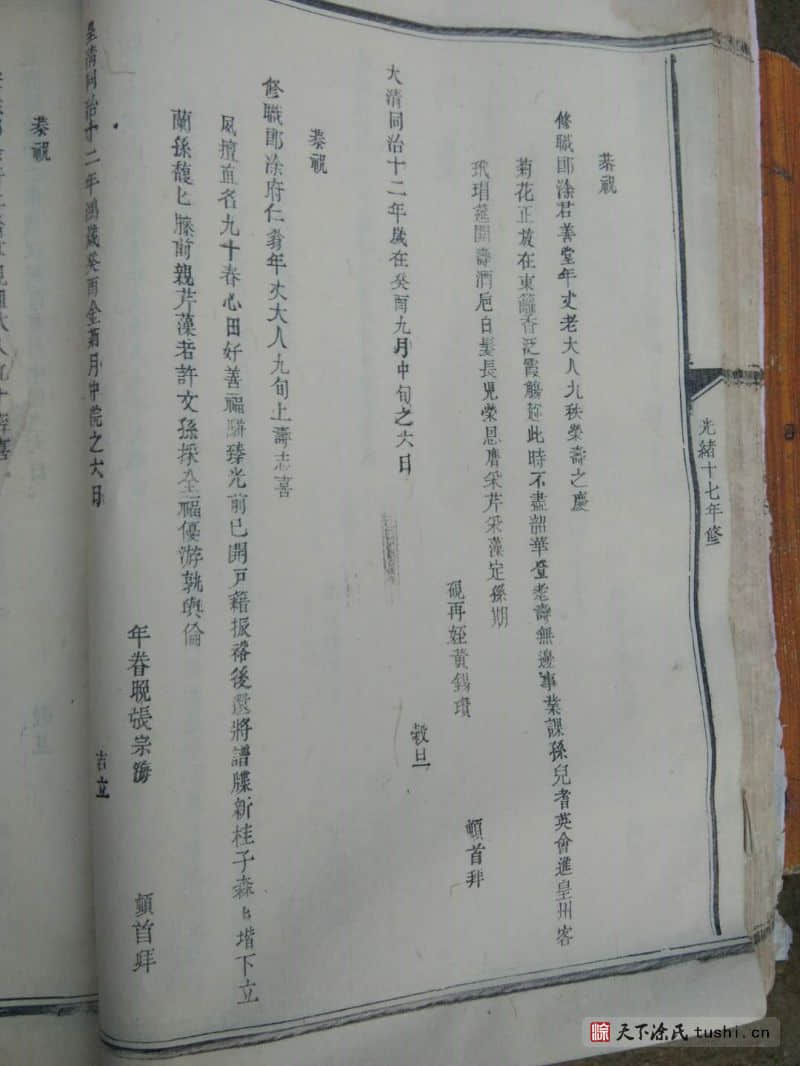 光緒十七年修
恭祝
修職郎涂君善堂年丈老大人九秩榮壽之慶
菊花正放在東籬香泛霞觴趁此時不盡韶華登耄壽無邊事業課孫兒耆英會進皇州客
玳瑁筵開壽酒卮白髮長兒榮恩膺采芹采藻定孫期
硯再姪黃錫瓚
頓首拜
大清同治十二年歲在癸酉九月中旬之六日
穀旦
恭祝
修職郎涂府仁肴年丈大人九旬上壽志喜
夙擅直名九十春心田好善福駢臻光前已開戸籍振裕後還將譜牒新桂子森匕堦下立
蘭孫馥匕膝前親芹藻若許文孫採全福優游孰與倫
年眷晚張宗海
頓首拜
皇清同治十二年鴻歲癸酉金菊月中浣之六日
吉立
恭祝
天下涂氏 tushi.cn